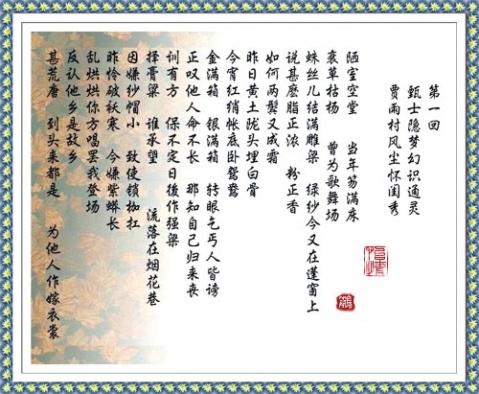 第一回
甄士隐梦幻识通灵
贾雨村风尘怀闺秀
陋室空堂 当年笏满床
衰草枯杨 曾为歌舞场
蛛丝儿结满雕梁 绿纱今又在蓬窗上
说甚麽脂正浓 粉正香
如何两鬓又成霜
昨日黄土陇头埋白骨
今宵红绡帐底卧鸳鸯
金满箱 银满箱 转眼乞丐人皆谤
正叹他人命不长 那知自己归来丧
训有方 保不定日後作强梁
择膏粱 谁承望 流落在烟花巷
因嫌纱帽小 致使锁枷扛
昨怜破袄寒 今嫌紫蟒长
乱烘烘你方唱罢我登场
反认他乡是故乡
甚荒唐 到头来都是 为他人作嫁衣裳